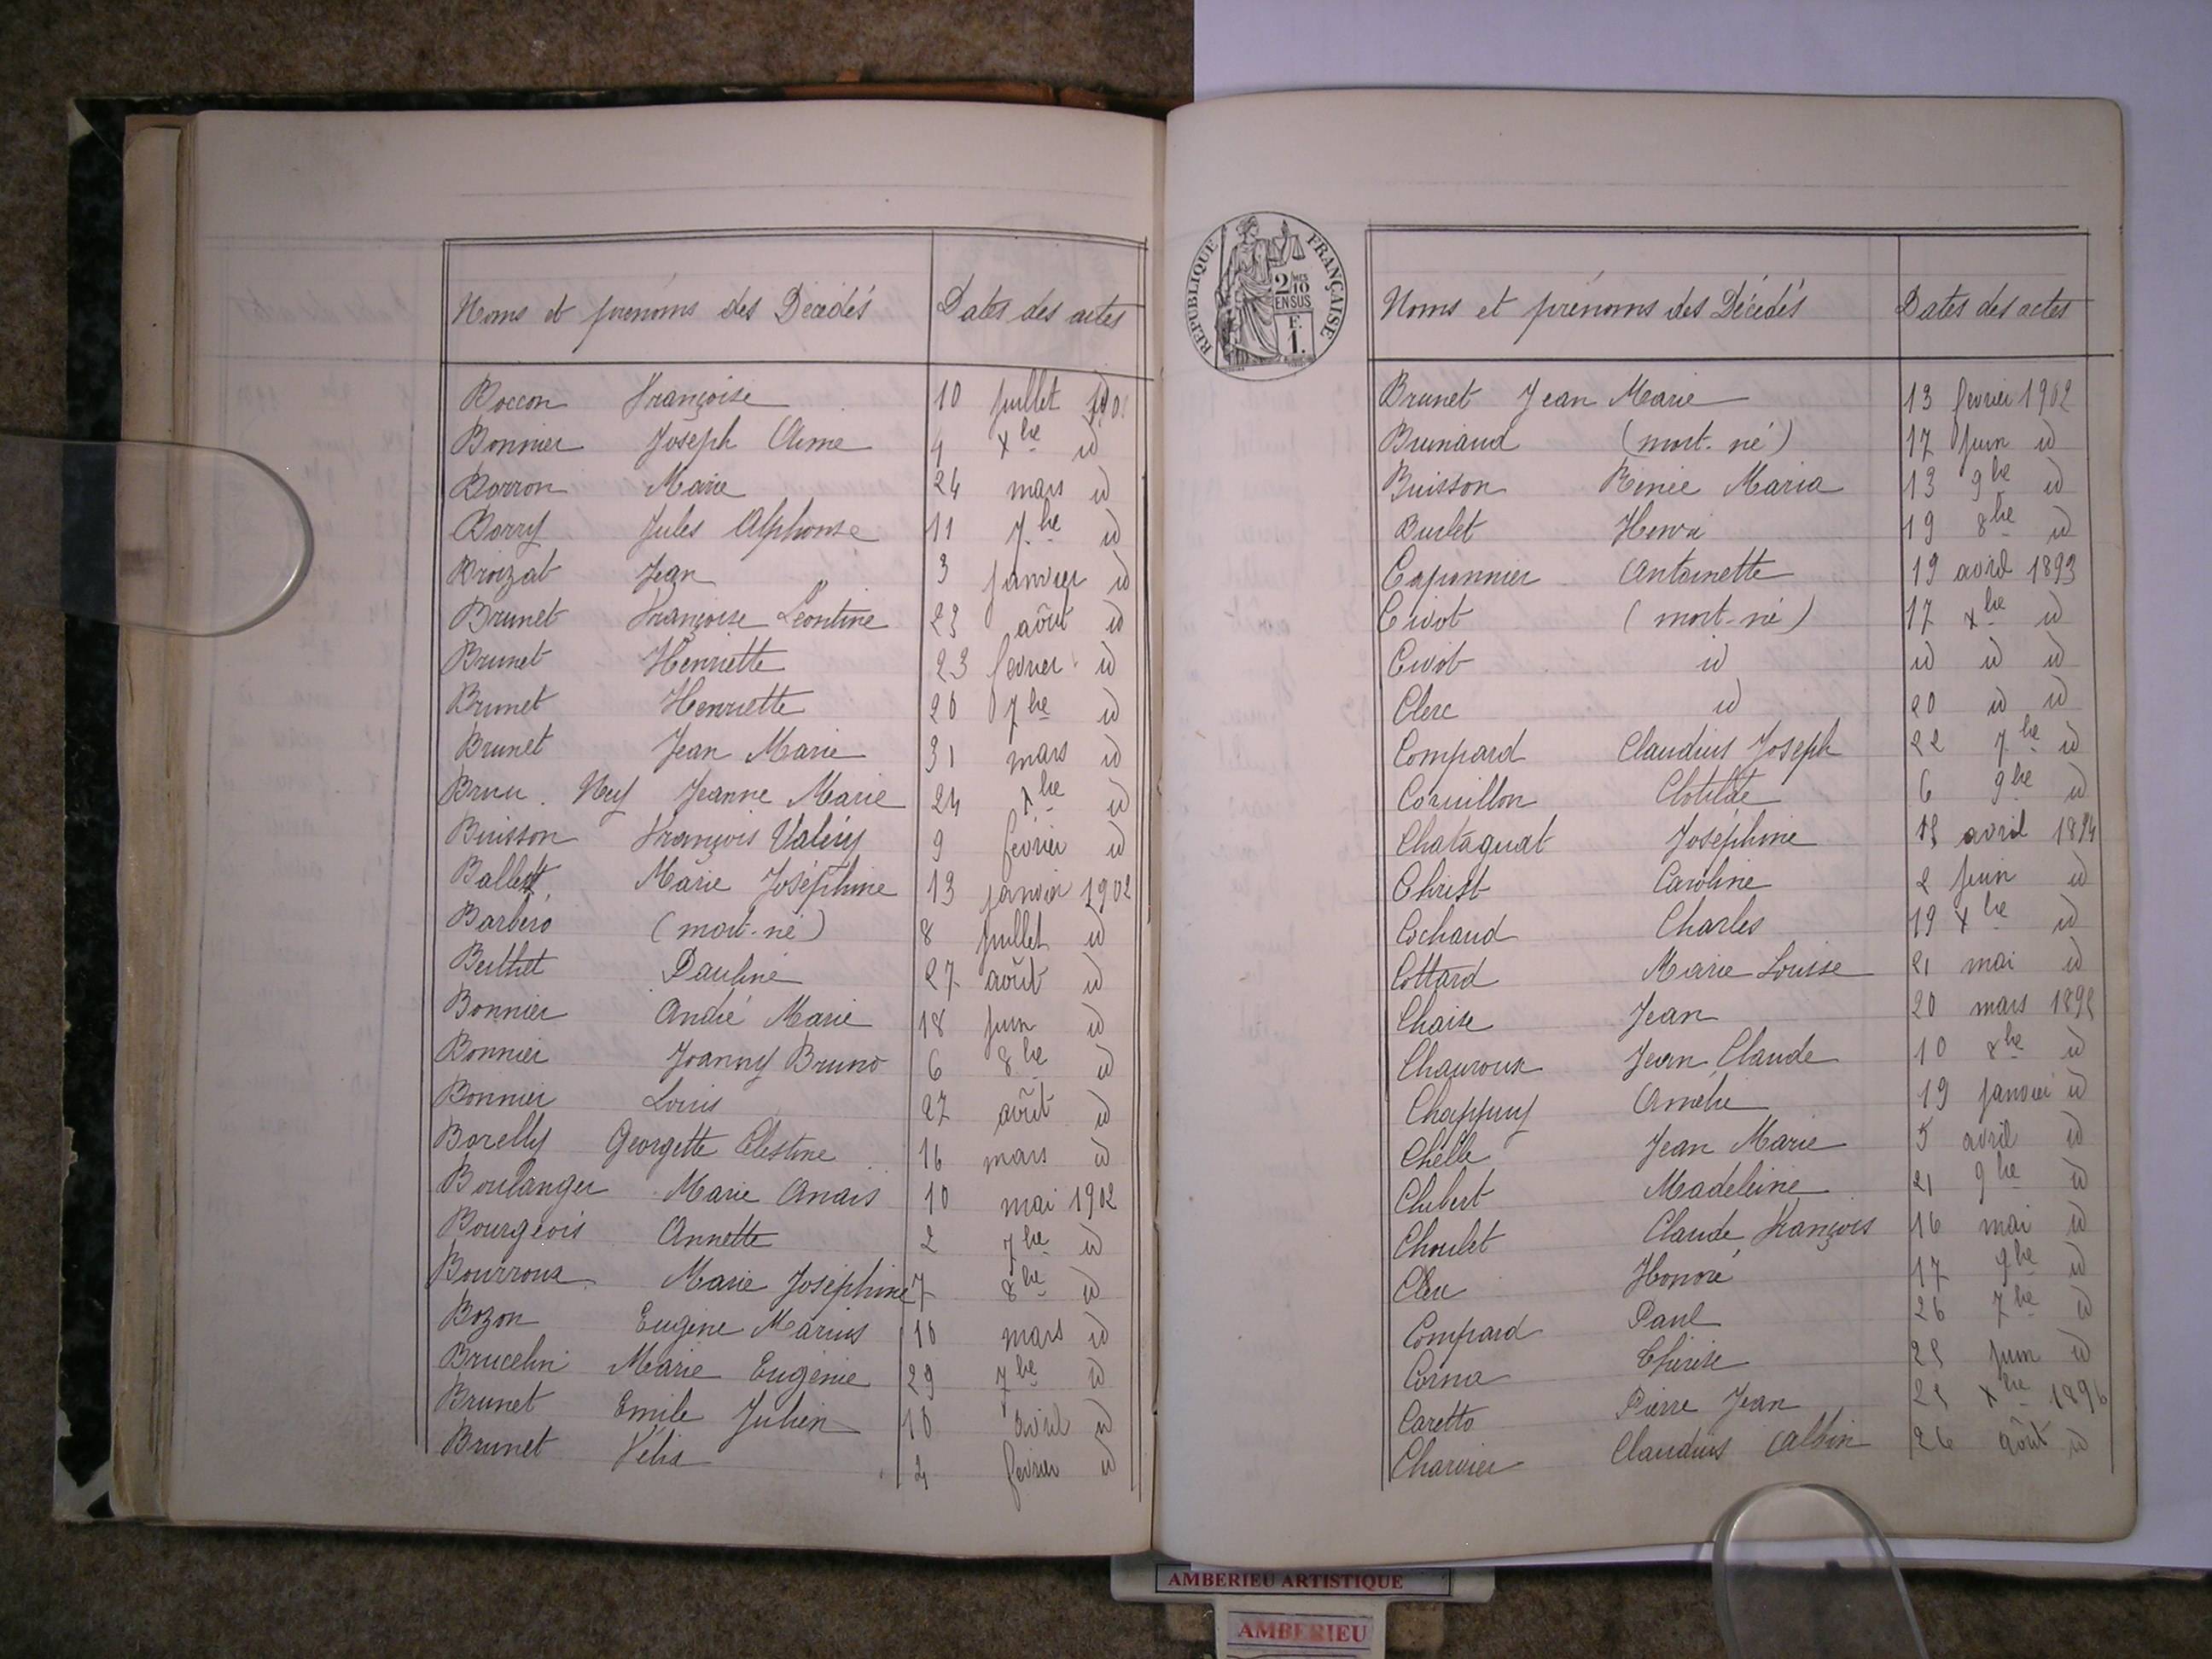 Noms et prénoms des Décédés Dates des actes
Boccon Françoise 10 juillet 1901
Bonnier Joseph Aimé 4 Xbre id
Borron Marie 24 mars id
Borry Jules Alphonse 11 7bre id
Broizat Jean 3 janvier id
Brunet Françoise Léontine 23 août id
Brunet Henriette 23 fevrier id
Brunet Henriette 20 7bre id
Brunet Jean Marie 31 mars id
Jeanne Marie 24 Xbre id
Buisson François Valéry 9 février id
Ballet Marie Joséphine 13 janvier 1902
Barbero (mort-né) 8 juillet id
Berthet Pauline 27 août id
Bonnier André Marie 18 juin id
Bonnier Joanny Bruno 6 8bre id
Bonnier Louis 27 août id
Borelly Georgette Célestine 16 mars id
Boulanger Marie Anaïs 10 mai 1902
Bourgeois Annette 2 7bre id
Bourroux Marie Joséphine 7 8bre id
Bozon Eugène Marius 10 mars id
Brucelin Marie Eugénie 29 7bre id
Brunet Emile Julien 10 avril id
Brunet Félix 4 février id
RÉPUBLIQUE FRANÇAISE
2/10 MES
EN SUS
F.
1.
Noms et prénoms des Décédés Dates des actes
Brunet Jean Marie 13 fevrier 1902
Brunaud (mort-né) 17 juin id
Buisson Renée Maria 13 9bre id
Burlet Henri 19 8bre id
Caponnier Antoinette 19 avril 1893
Civot (mort-né) 17 Xbre id
Civot id id id id
Clerc id 20 id id
Compard Claudius Joseph 22 7bre id
Cornillon Clotilde 6 9bre id
Chatagnat Joséphine avril 1894
Christ Caroline 2 juin id
Cochaud Charles 19 Xbre id
Cottard Marie Louise 21 mai id
Chaise Jean 20 mars 1895
Chauroux Jean Claude 10 8bre id
Chappuy Amélie 19 janvier id
Chelle Jean Marie 5 avril id
Chibert Madeleine 21 9bre id
Choulet Claude François 16 mai id
Honoré 17 9bre id
Compard Paul 26 7bre id
Corna Thérèse 25 juin id
Caretto Pierre Jean 25 Xbre 1896
Charvier Claudius Albin 26 août id
AMBERIEU ARTISTIQUE
AMBERIEU